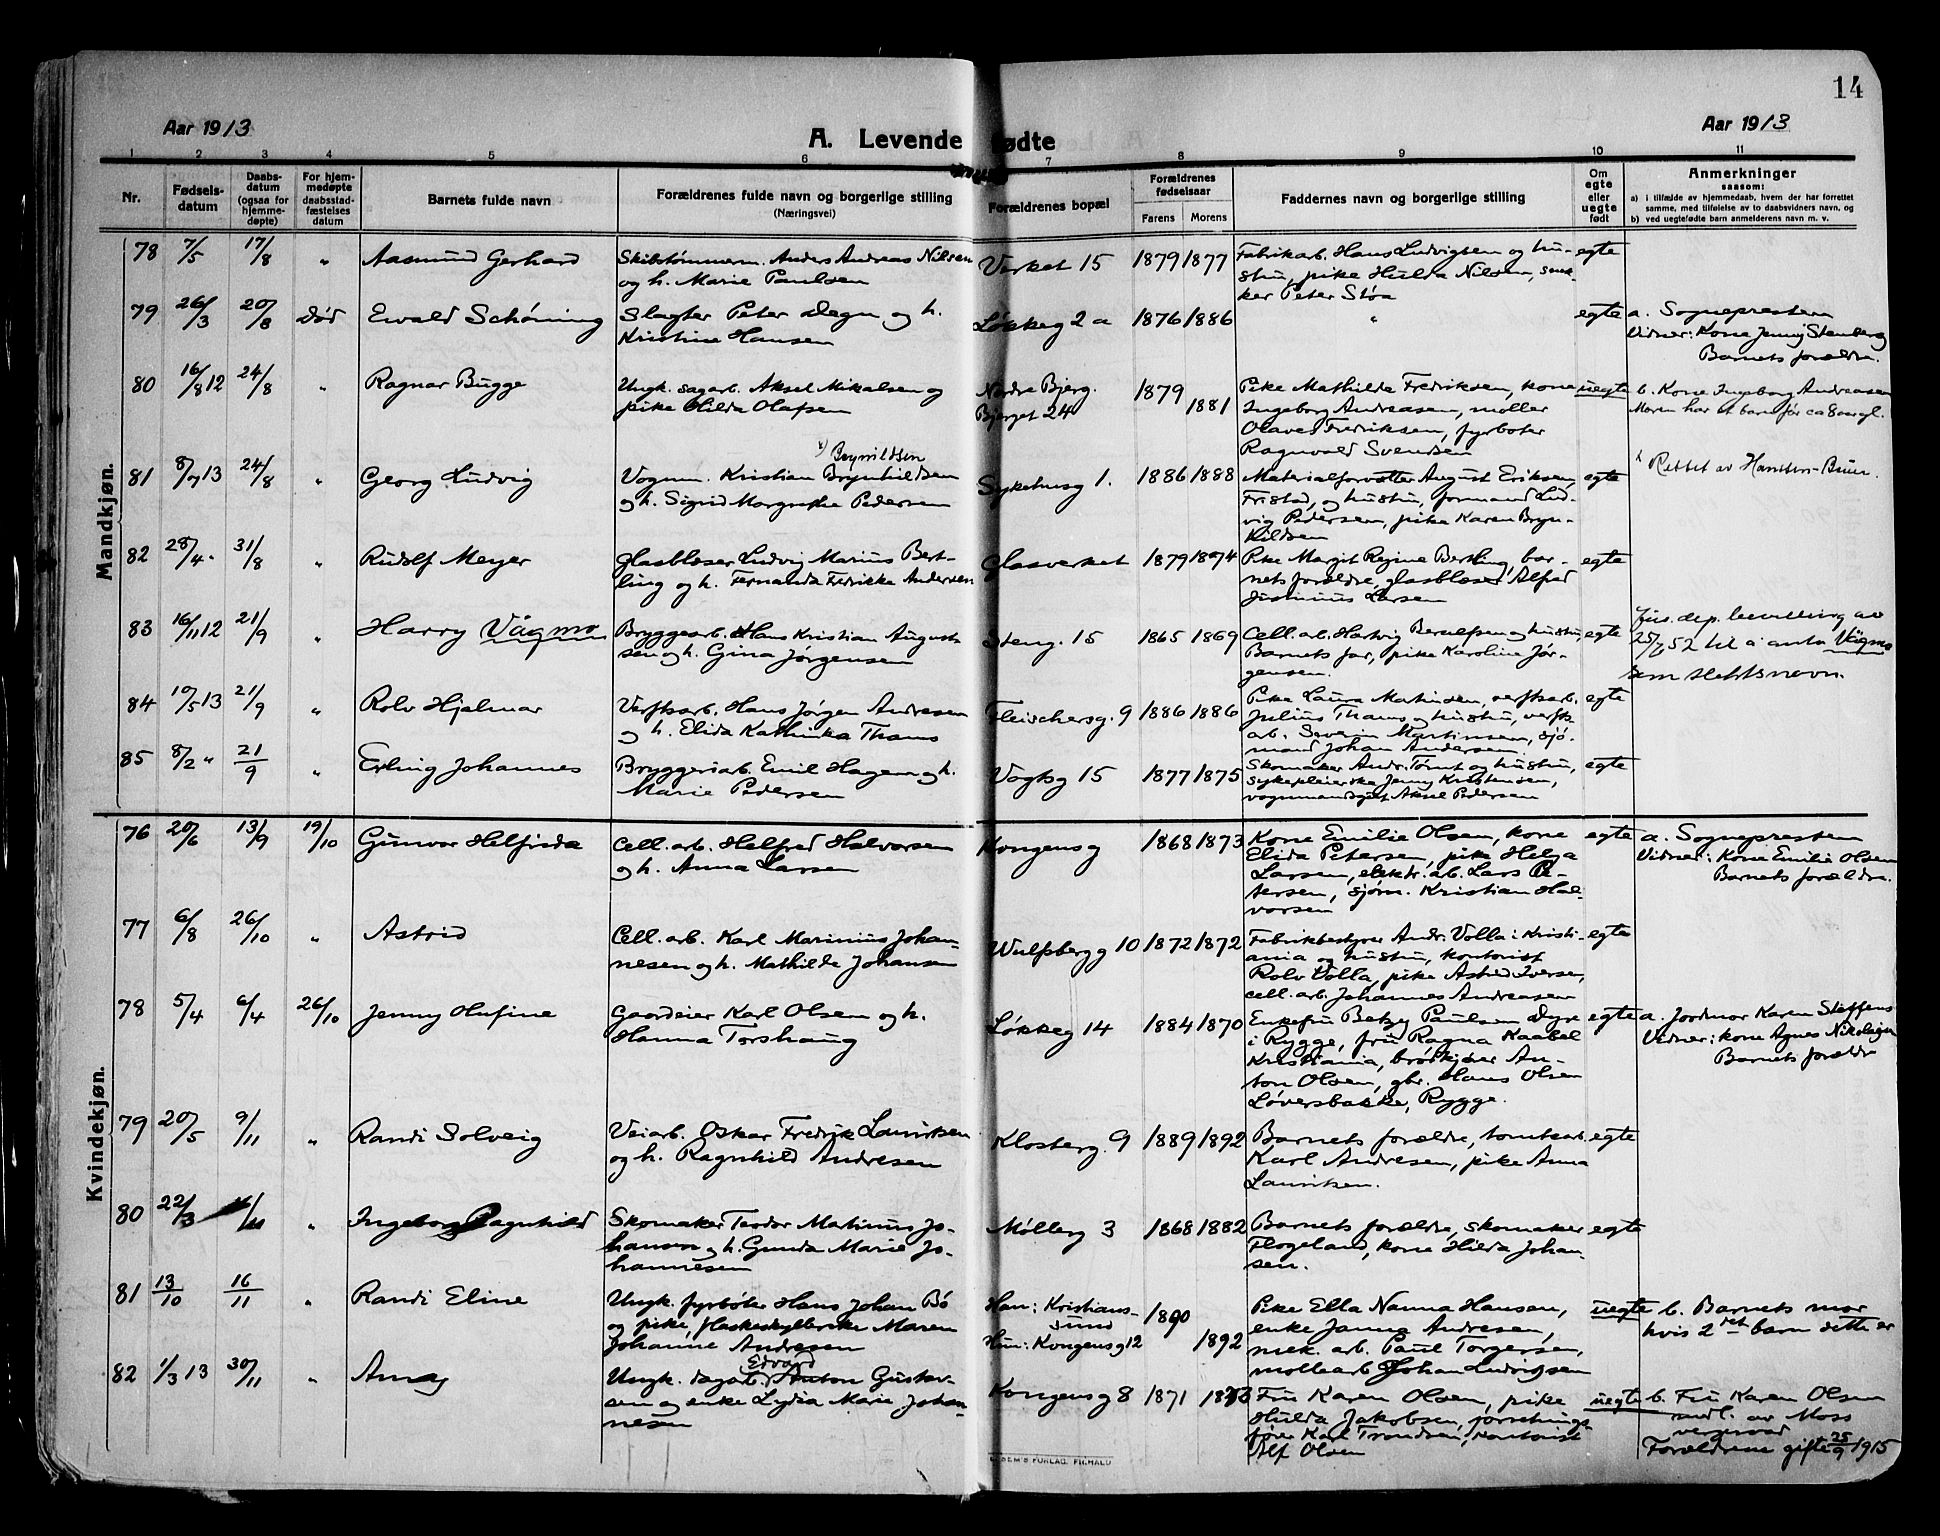 14
Aar 1913
A. Levende fødte
Aar 1913
1 2 3 4 5 6 7 8 9 10 11
Nr.
Fødsels-
datum
Daabs-
datum
(ogsaa for
hjemme-
døpte)
For hjem-
medøpte
daabsstad-
fæstelses
datum
Barnets fulde navn
Forældrenes fulde navn og borgerlige stilling
(Næringsvei)
Forældrenes bopæl
Forældrenes
fødselsaar
Farens Morens
Faddernes navn og borgerlige stilling
Om
egte
eller
uegte
født
Anmerkninger
saasom:
a) i tilfælde av hjemmedaab, hvem der har forrettet
samme, med tilføielse av to daabsvidners navn, og
b) ved uegtefødte barn anmelderens navn m. v.
Mandkjøn.
78 7/5 17/8 " Aasmund Gerhard
Skibstømmerm. Anders Andreas Nilsen
og h. Marie Paulsen
Verket 15 1879 1877
Fabrikarb. Hans Ludvigsen og hu-
stru, pike Hulda Nilsen, snek-
ker Peter Støa
egte
79 26/3 20/8 Død Ewald Schöning
Slagter Peter Degn og h.
Kristine Hansen
Løkkeg 2a 1876 1886 " egte
a. Sognepresten
Vidner: Kone Jenny Stenberg
Barnets forældre.
80 16/8 12 24/8 " Ragnar Bugge
Ungk. sagarb. Aksel Mikalsen og
pike Hilda Olafsen
Nordre Bjerg.
Bjerget 24
1879
1881
Pike Mathilde Fredriksen, kone
Ingeborg Andreasen, møller
Olaves Fredriksen, fyrbøter
Ragnvald Svendsen
uegte
b. Kone Ingeborg Andreasen
Moren har et barn før ca 8 aar gl.
81 8/7 13 24/8 " Georg Ludvig
x) Brynildsen
Vognm. Kristian Brynhildsen
og h. Sigrid Margrethe Pedersen
Sykehusg 1. 1886 1888
Materialforvalter August Eriksen,
Fristad, og hustru, formand Lud-
vig Pedersen, pike Karen Bryn-
hildsen
egte
x Rettet av Hansten-Buer.
82 28/4 " 31/8 " Rudolf Meyer
Glasblæser Ludvig Marius Bert-
ling og h. Fernanda Fredrikke Andersen
Glasverket 1879 1874
Pike Margit Regine Bertling, bar-
nets forældre, glasblæser Alfred
Justinius Larsen
egte
83 16/11 12 21/9 " Harry Vågmo
Bryggearb. Hans Kristian August-
sen og h. Gina Jørgensen
Steng. 15 1865 1869
Cell. arb. Hartvig Berulfsen og hustru,
Barnets far, pike Karoline Jør-
gensen.
egte
Jus. dep. bevilling av
25/7 52 til å anta Vågmo
som slektsnavn.
84 10/5 13 21/9 " Rolv Hjalmar
Verftsarb. Hans Jørgen Andresen
og h. Elida Kathinka Thams
Fleischersg. 9 1886 1886
Pike Laura Martinsen, verftsarb.
Julius Thams og hustru, verfts
arb. Severin Martinsen, sjø-
mand Johan Andersen
egte
85 8/2 " 21/9 " Erling Johannes
Bryggeriarb. Emil Hagen og h.
Marie Pedersen
Vogtsg 15 1877 1875
Skomaker Andr. Tomt og hustru,
sykepleierske Jenny Kristensen,
vognmandsgut Aksel Pedersen
egte
Kvindekjøn.
76 20/6 13/9 19/10 Gunvor Helfrida
Cell. arb. Helfred Halvorsen
og h. Anna Larsen
Kongensg 1868 1873
Kone Emilie Olsen, kone
Elida Petersen, pike Helga
Larsen, elektr. arb. Lars Pe-
tersen, sjøm. Kristian Hal-
vorsen
egte
a. Sognepresten
Vidner: Kone Emilie Olsen
Barnets forældre.
77 6/8 26/10 " Astrid
Cell. arb. Karl Marinius Johan-
nesen og h. Mathilde Johansen
Wulfsbergg 10 1872 1872
Fabrikbestyrer Andr. Volla i Kristi-
ania og hustru, kontorist
Rolv Volla, pike Astrid Iversen,
cell. arb. Johannes Andreasen
egte
78 5/4 6/4 26/10 Jenny Olufine
Gaardeier Karl Olsen og h.
Hanna Torshaug
Løkkeg 14 1884 1870
Enkefru Betzy Paulsen Dyre
i Rygge, fru Ragna Kaabel
Kristiania, brødkjører An-
ton Olsen, gbr. Hans Olsen
Løversbakke, Rygge.
egte
a. Jordmor Karen Steffens
Vidner: kone Agnes Nikolaisen
Barnets forældre
79 20/5 9/11 " Randi Solveig
Veiarb. Oskar Fredrik Lauritsen
og h. Ragnhild Andresen
Klosterg. 9 1889 1892
Barnets forældre, tomtearb.
Karl Andresen, pike Anna
Lauritsen.
egte
80 22/3 /11 " Ingeborg Ragnhild
Skomaker Teodor Martinius Jo-
hansen og h. Gunda Marie Jo-
hannesen
Møllerg 3 1868 1882
Barnets forældre, skomaker
Flogeland, kone Hilda Johan-
sen.
egte
81 13/10 16/11 " Randi Eline
Ungk. fyrbøter Hans Johan Bö
og pike, flaskeskyllerske Maren
Johanne Andresen
Han: Kristians-
sund
Hun: Kongensg 12
1890
1892
Pike Ella Nanna Hansen,
enke Janna Andresen,
mek. arb. Paul Torgersen,
møllearb Johan Ludvigsen
uegte
b. Barnets mor
hvis 2det barn dette er
82 1/3 13 30/11 "
Edvard
Ungk. dagarb. Anton Gustav-
sen og enke Lydia Marie Johan-
nesen
Kongensg 8 1871
Fru Karen Olsen, pike
Hulda Jakobsen, forretnings
fører Karl Trondsen, kontorist
Alf Olsen
uegte
b. Fru Karen Olsen
medl. av Moss
vergeraad
Forældrene gifte 25/9 1915